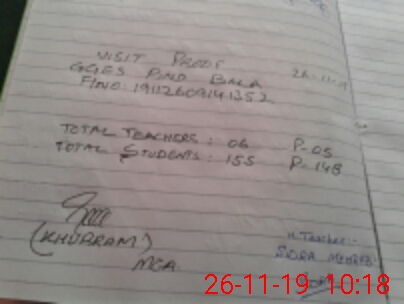 VISIT PROOF
26-11-19
GGES PIND BALA
TOTAL TEACHERS : 06 P-05
TOTAL STUDENTS : 155 P-148
(KHURRAM)
MEA
H.Teacher.
SIDRA
26-11-19 10:18